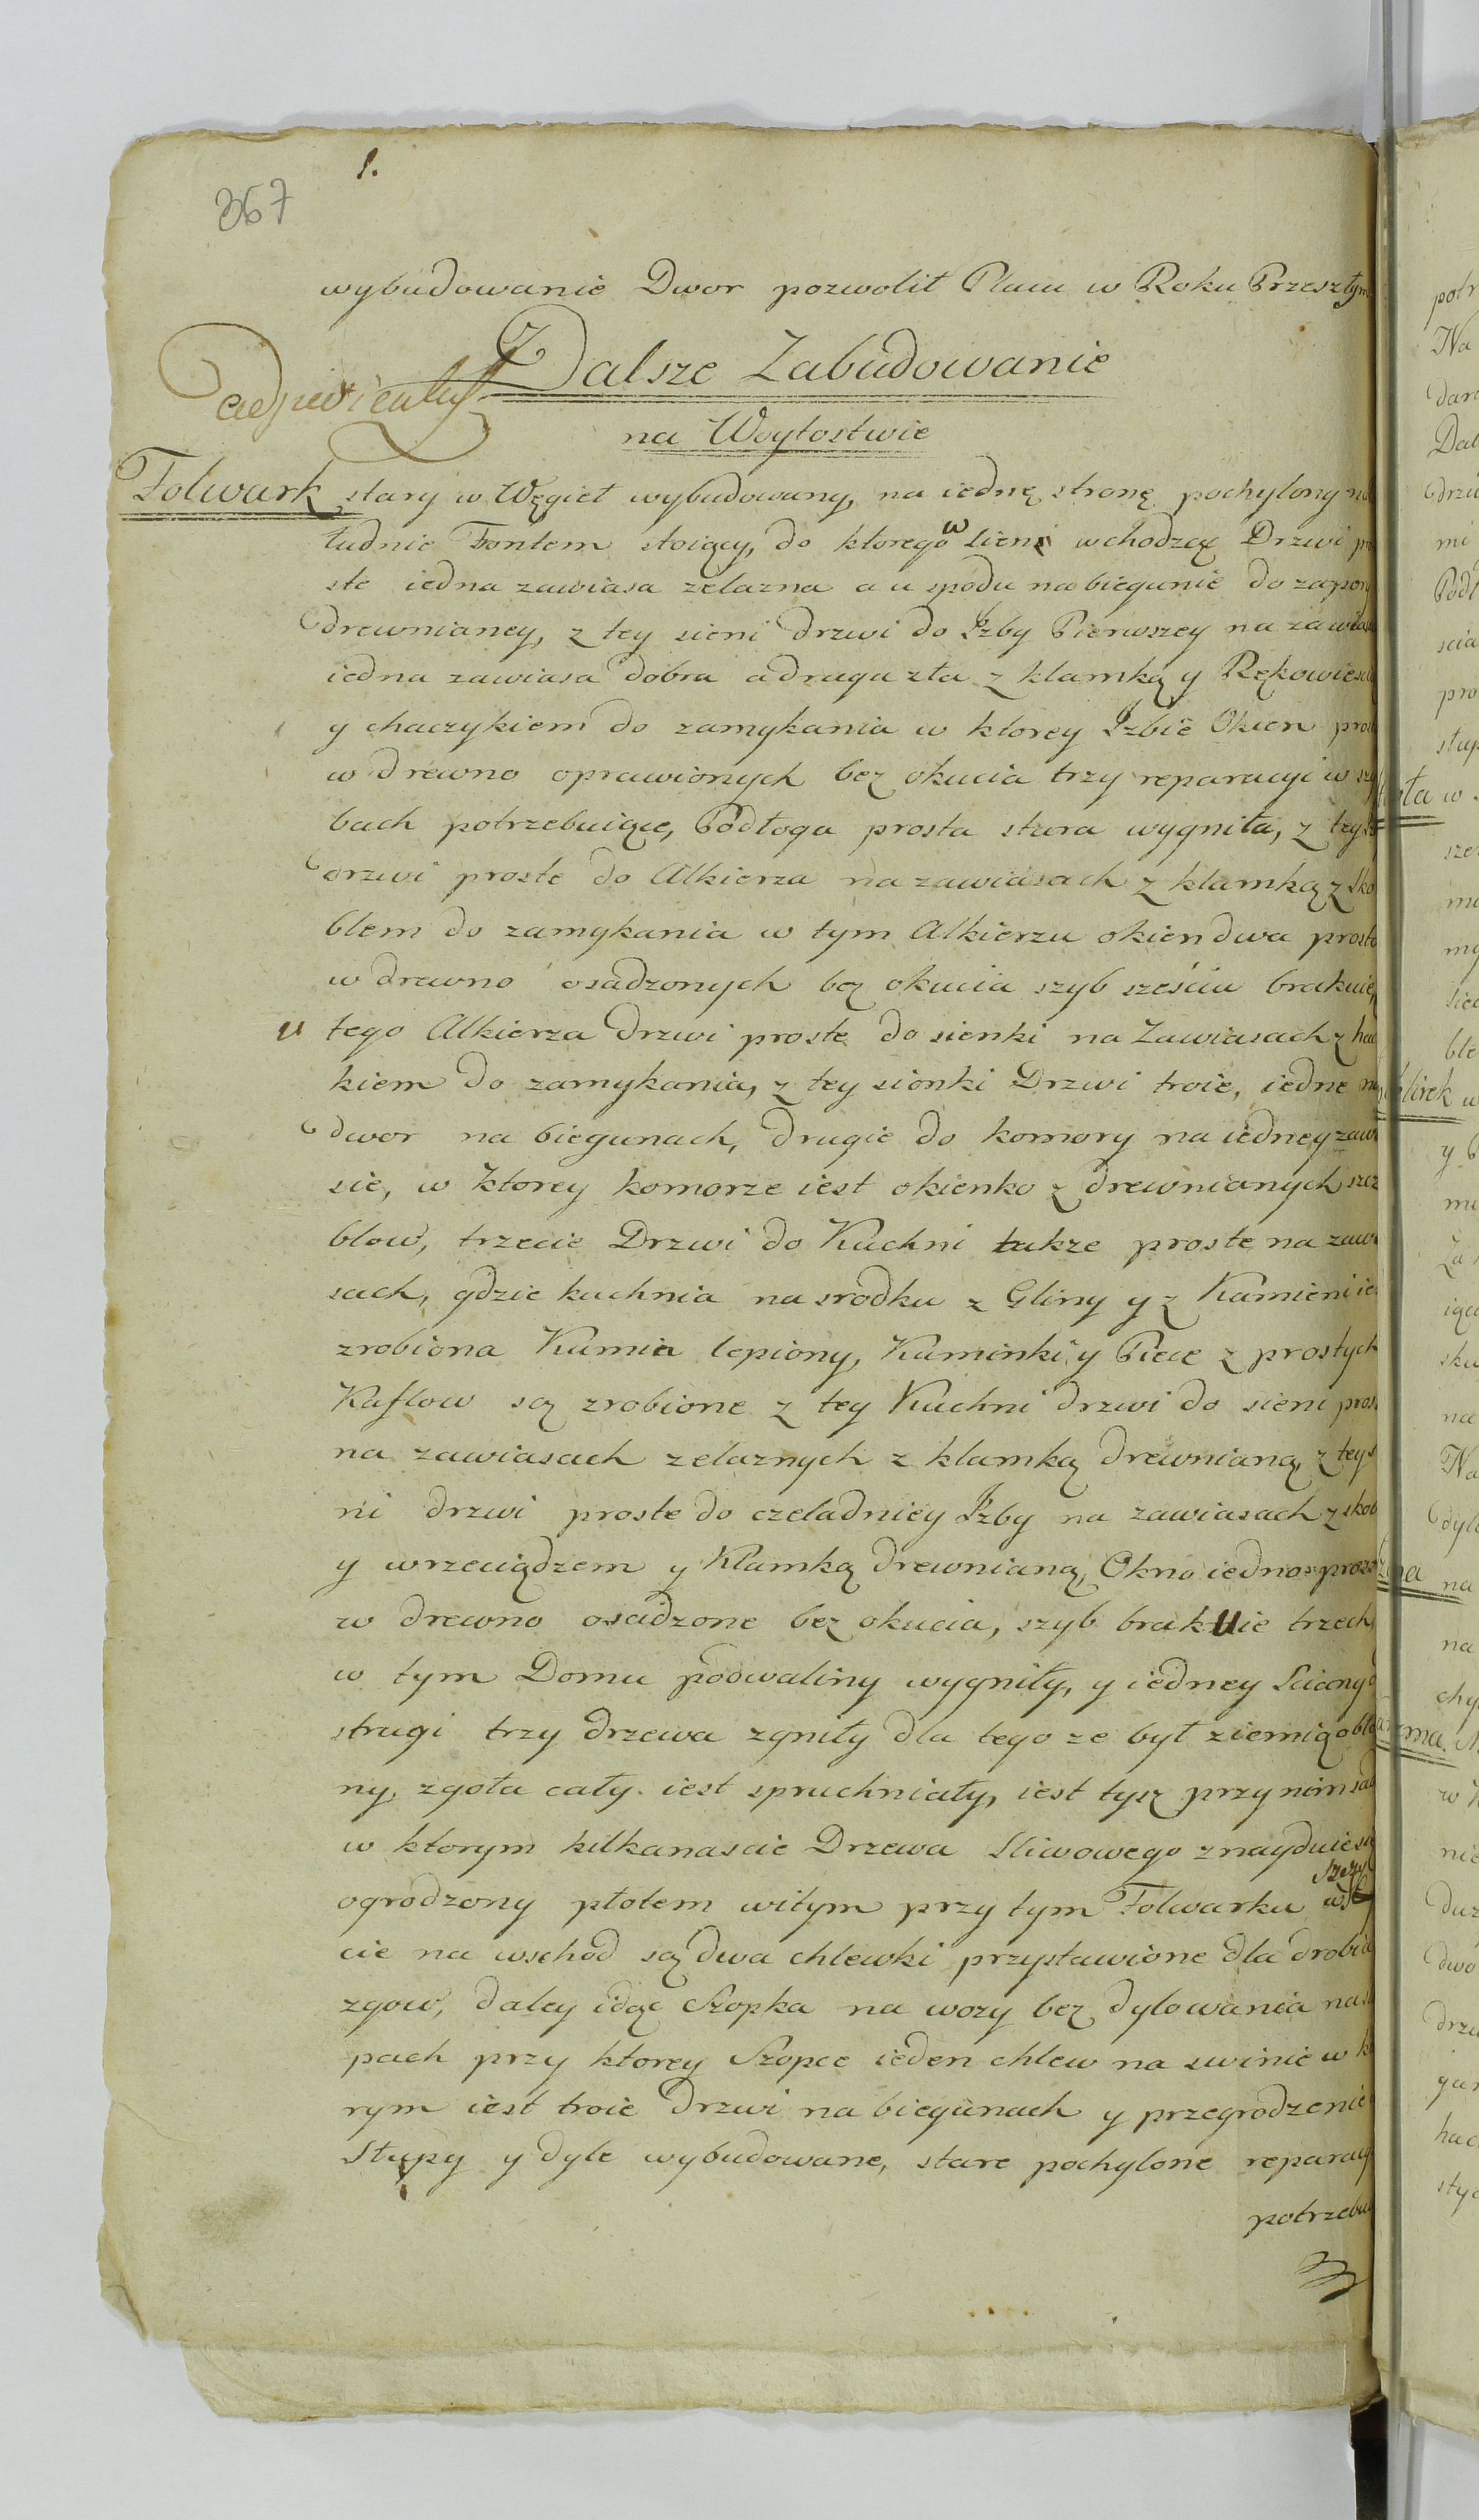 1.
367
wybudowanie Dwor pozwolił Placu w Roku Przeszłym
Dalsze Zabudowanie
na Woytostwie
Folwark stary w Węgieł wybudowany, na iednę stronę pochylony na
łudnie Frontem stoiący, do ktorego w Sieni wchodząc Drzwi pro
ste iedna zawiasa zelazna a u spodu na biegunie do zapory
drewnianey, z tey sieni drzwi do Izby Pierwszey na zawias
iedna zawiasa dobra a druga zła z klamką y Rękowieścią
y haczykiem do zamykania w ktorey Izbie Okien prosto
w drewno oprawionych bez okucia trzy reparacyi w szy
bach potrzebuiące, Podłoga prosta stara wygniła, z tey
drzwi proste do Alkierza na zawiasach z klamką z Sko
blem do zamykania w tym Alkierzu okien dwa prosto
w drewno osadzonych bez okucia szyb sześciu brakuie,
u tego Alkierza drzwi proste do sienki na Zawiasach z hac
kiem do zamykania, z tey sionki Drzwi troie, iedne na
dwor na biegunach, drugie do komory na iedney zawia
sie, w ktorey komorze iest okienko z drewnianych szcze
blow, trzecie Drzwi do Kuchni także proste na zawia
sach, gdzie kuchnia na srodku z Gliny y z Kamieni ie
zrobiona Kumin lepiony, Kaminki y Piece z prostych
Kaflow są zrobione z tey Kuchni drzwi do sieni pros
na zawiasach zelaznych z klamką drewnianą, z tey s
ni drzwi proste do czeladniey Izby na zawiasach z skob
y wrzeciądzem y Klamką drewnianą, Okno iedno prosto
w drewno osadzone bez okucia, szyb brakUie trzech,
w tym Domu podwaliny wygniły, y iedney Sciany
strugi trzy drzewa zgniły dla tego ze był ziemią oblo
ny, zgoła cały iest spruchniały, iest tysz przy nim sad
w ktorym kilkanascie Drzewa Sliwowego znayduie się
ogrodzony płotem witym przy tym Folwarku w Szczy
cie na wschod są dwa chlewki przystawione dla drobia
zgow, daley idąc Szopka na wozy bez dylowania na s
pach przy ktorey Szopce ieden chlew na swinie w k
rym iest troie Drzwi na biegunach y przegrodzenie
Słupy y dyle wybudowane, stare pochylone reparacy
potrzebui